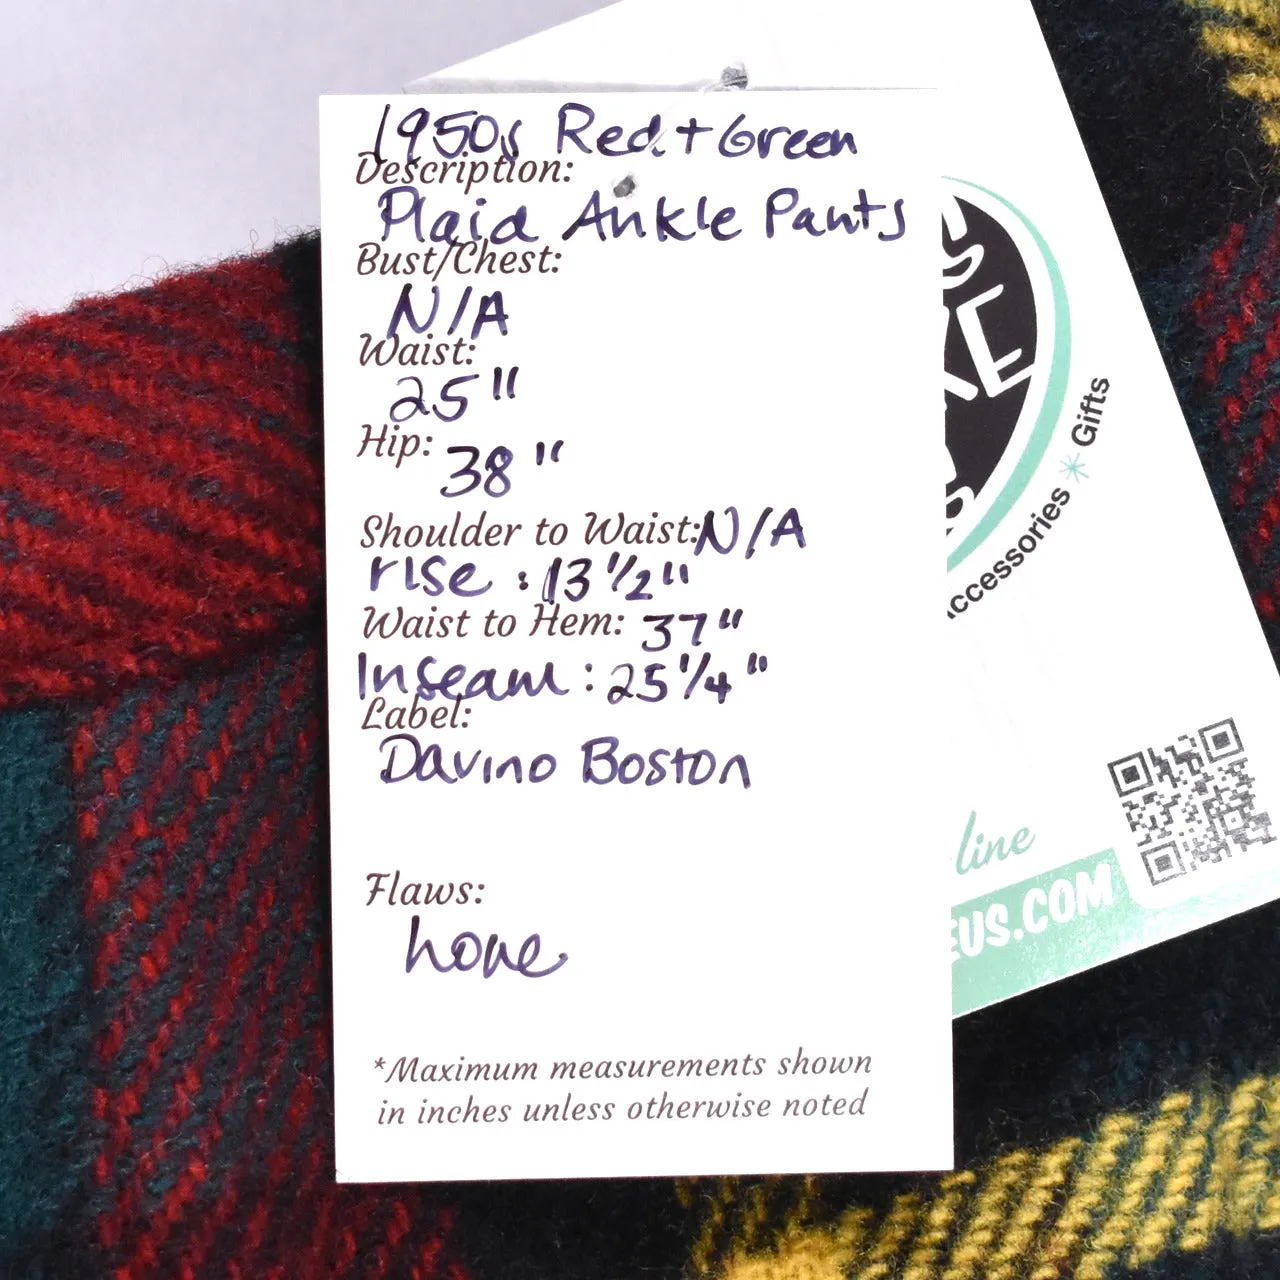 1950s Red + Green
Description:
Plaid Ankle Pants
Bust/Chest:
N/A
Waist:
25"
Hip: 38"
Shoulder to Waist: N/A
rise : 13 1/2"
Waist to Hem: 37"
Inseam : 25 1/4"
Label:
Davino Boston
Flaws:
none
*Maximum measurements shown
in inches unless otherwise noted
ccessories * Gifts
line
EUS.COM